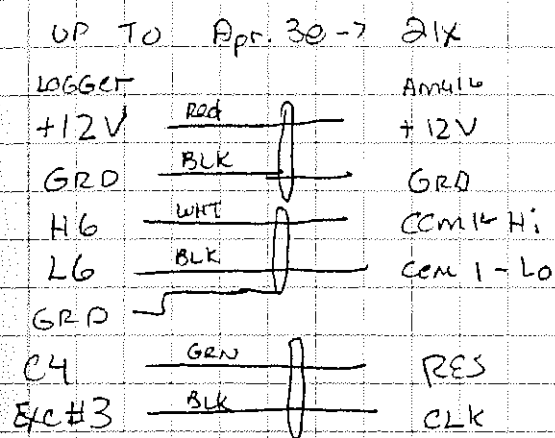 UP TO Apr. 30 -> 21X
LOGGER AM416
+12V Red +12V
GRD BLK GRD
H6 WHT COM 1- Hi
L6 BLK COM 1 - LO
GRD
C4 GRN RES
EXC#3 BLK CLK